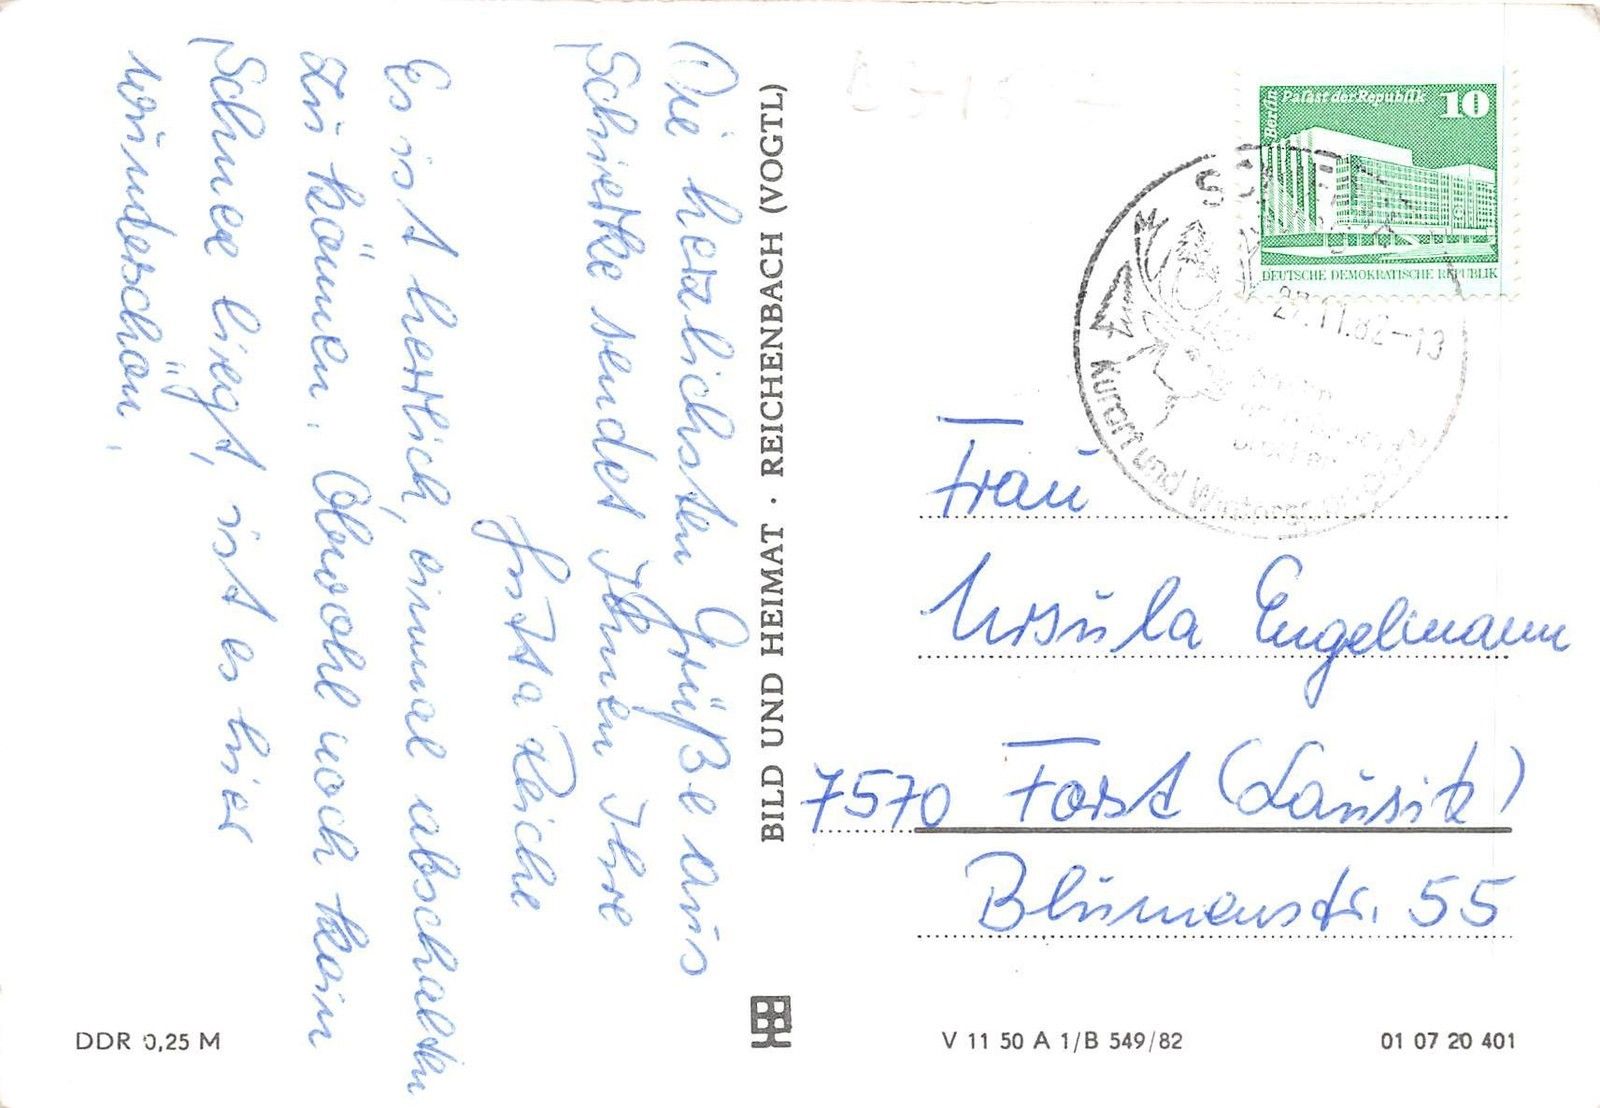 Die herzlichsten Grüße aus
Schierke sendet Ihnen Ihre
Jutta Reiche
Es ist herrlich, einmal abschalten
zu können. Obwohl noch kein
Schnee liegt, ist es hier
wunderschön.
BILD UND HEIMAT · REICHENBACH (VOGTL)
Berlin
Palast der Republik
10
DEUTSCHE DEMOKRATISCHE REPUBLIK
27.11.82-13
Kurort und Wintersport
Frau
Ursula Engelmann
7570 Forst (Lausitz)
Blumenstr. 55
DDR 0,25 M
V 11 50 A 1/B 549/82
01 07 20 401